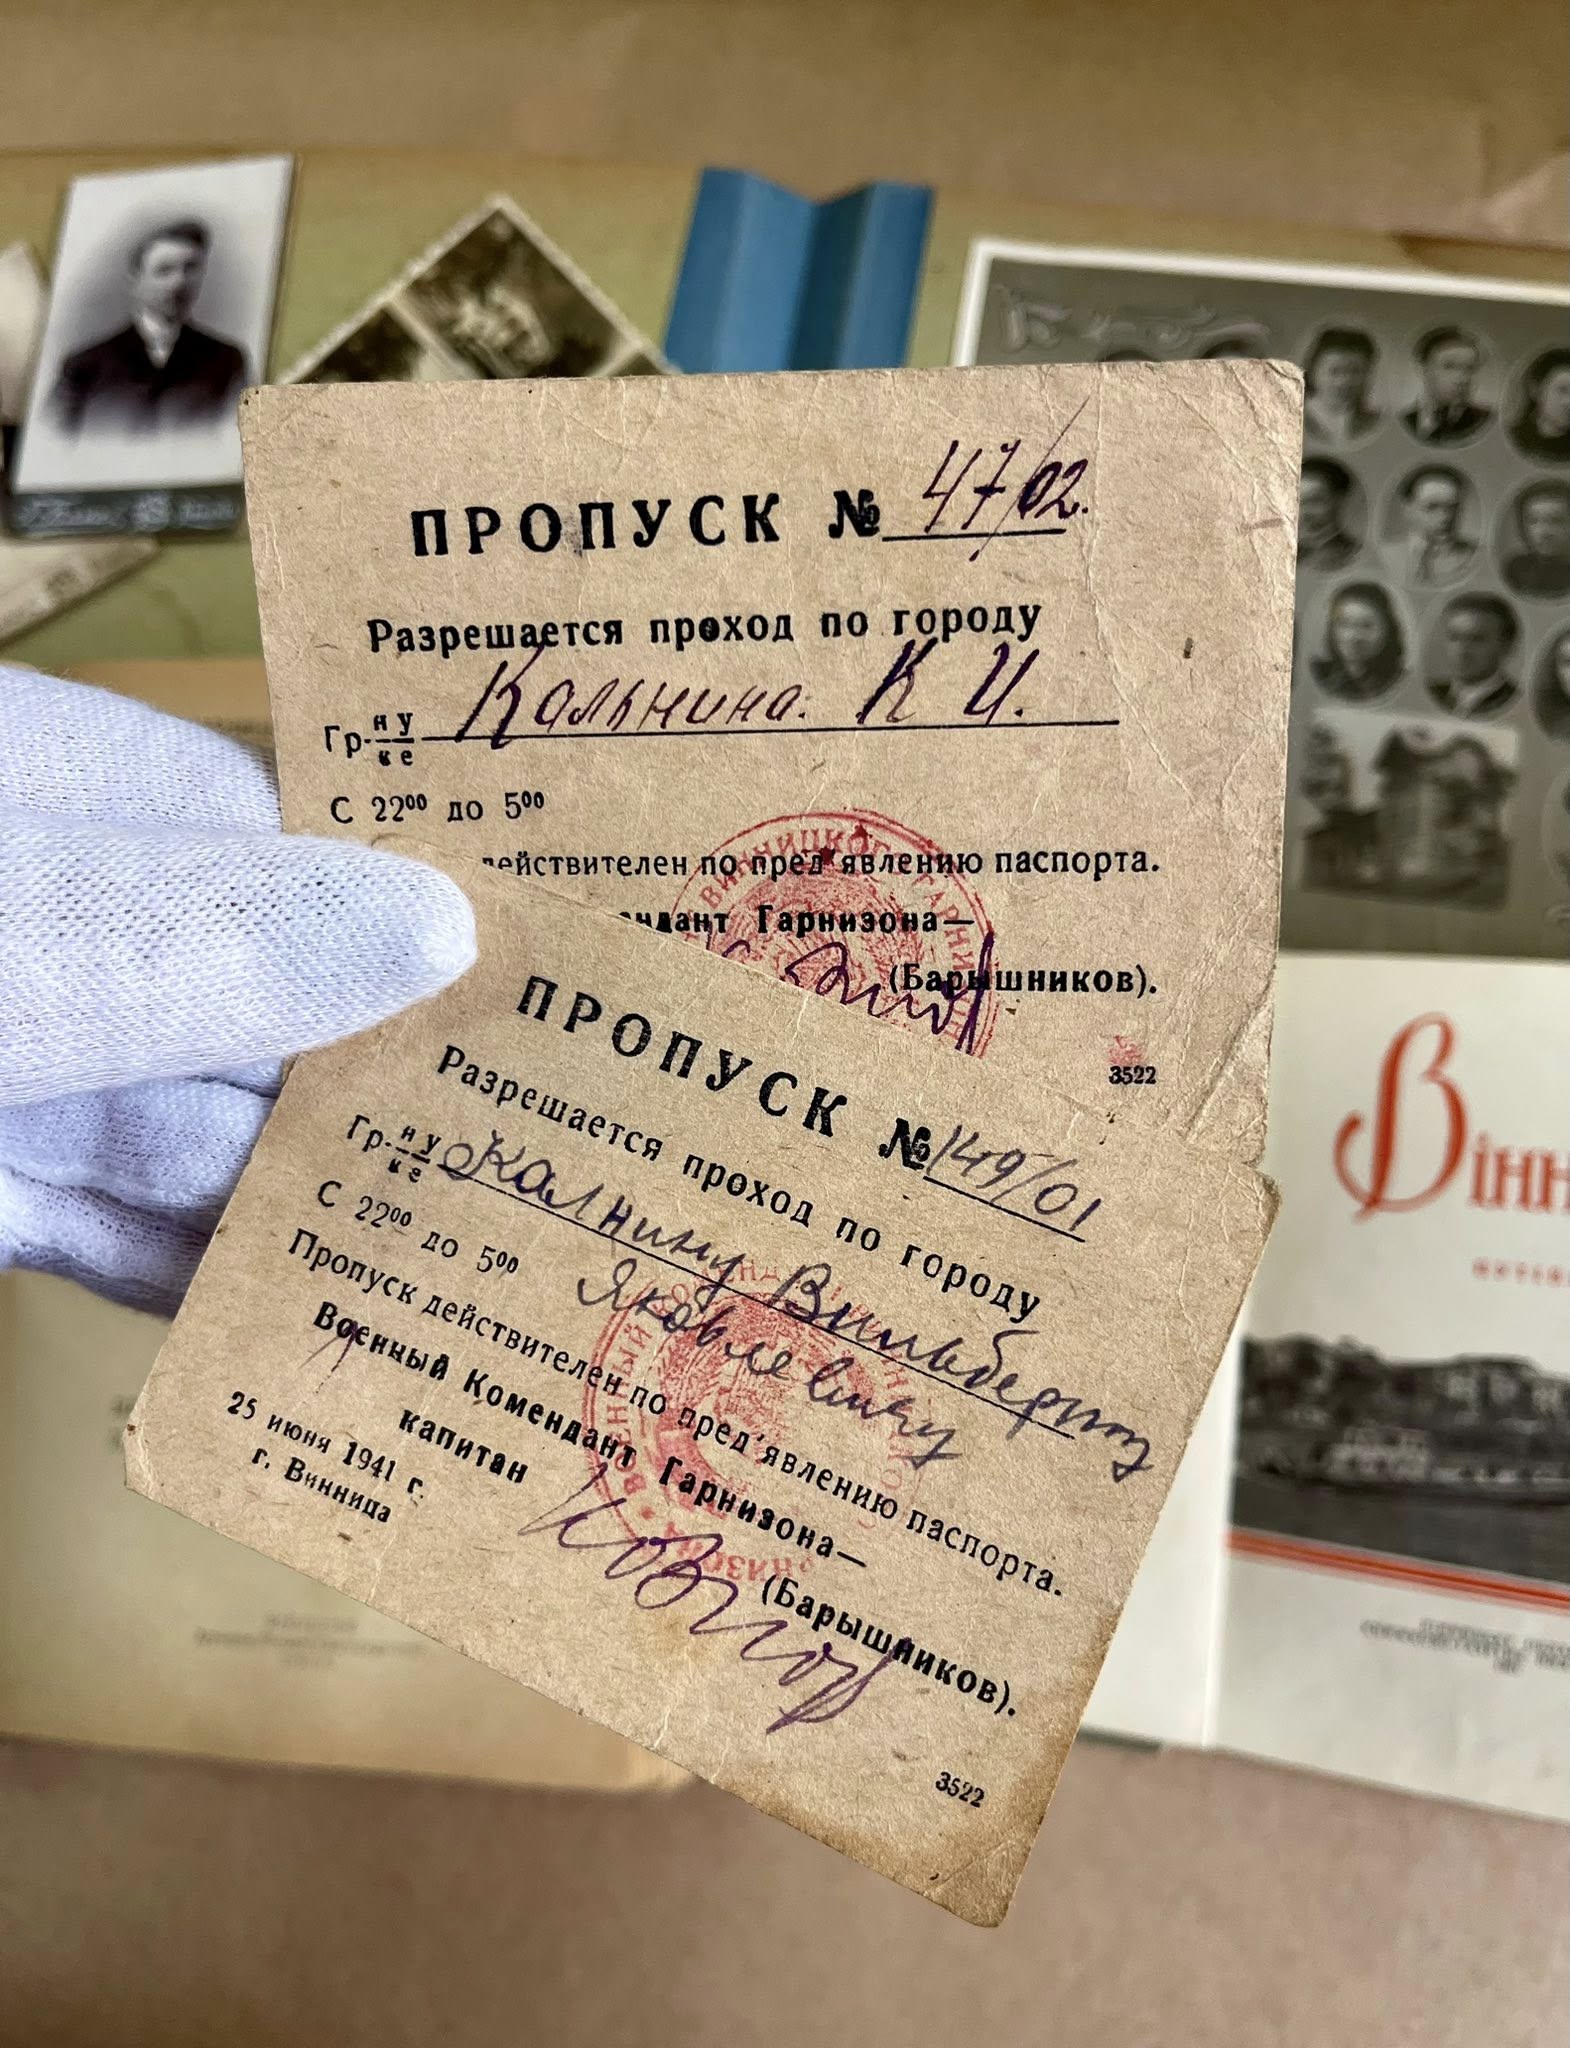 ПРОПУСК № 47/02.
Разрешается проход по городу
Гр-ну/ке Кальнина. К И.
С 22⁰⁰ до 5⁰⁰
действителен по пред'явлению паспорта.
Гарнизона—
(Барышников).
3522
ПРОПУСК № 149/01
Разрешается проход по городу
Гр-ну/ке Калнину Вильберту
Яковлевичу
С 22⁰⁰ до 5⁰⁰
Пропуск действителен по пред'явлению паспорта.
Военный Комендант Гарнизона—
капитан
(Барышников).
25 июня 1941 г.
г. Винница
3522
Вінн